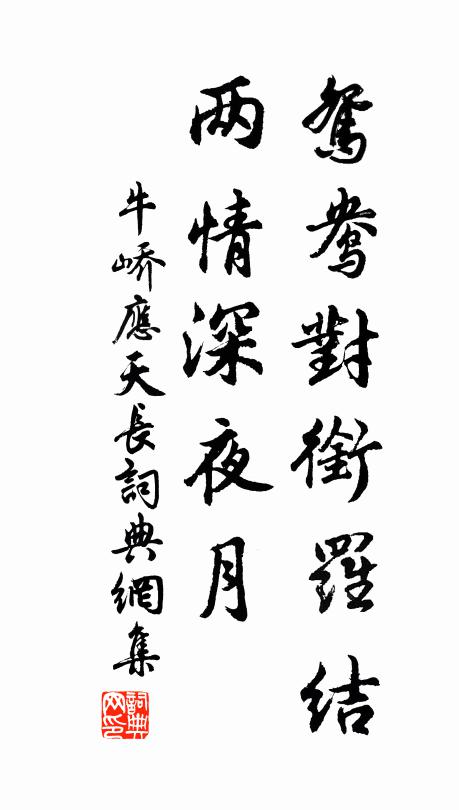 鴛鴦對銜羅結
两情深夜月
牛嶠應天長詞典網集
詞典網印